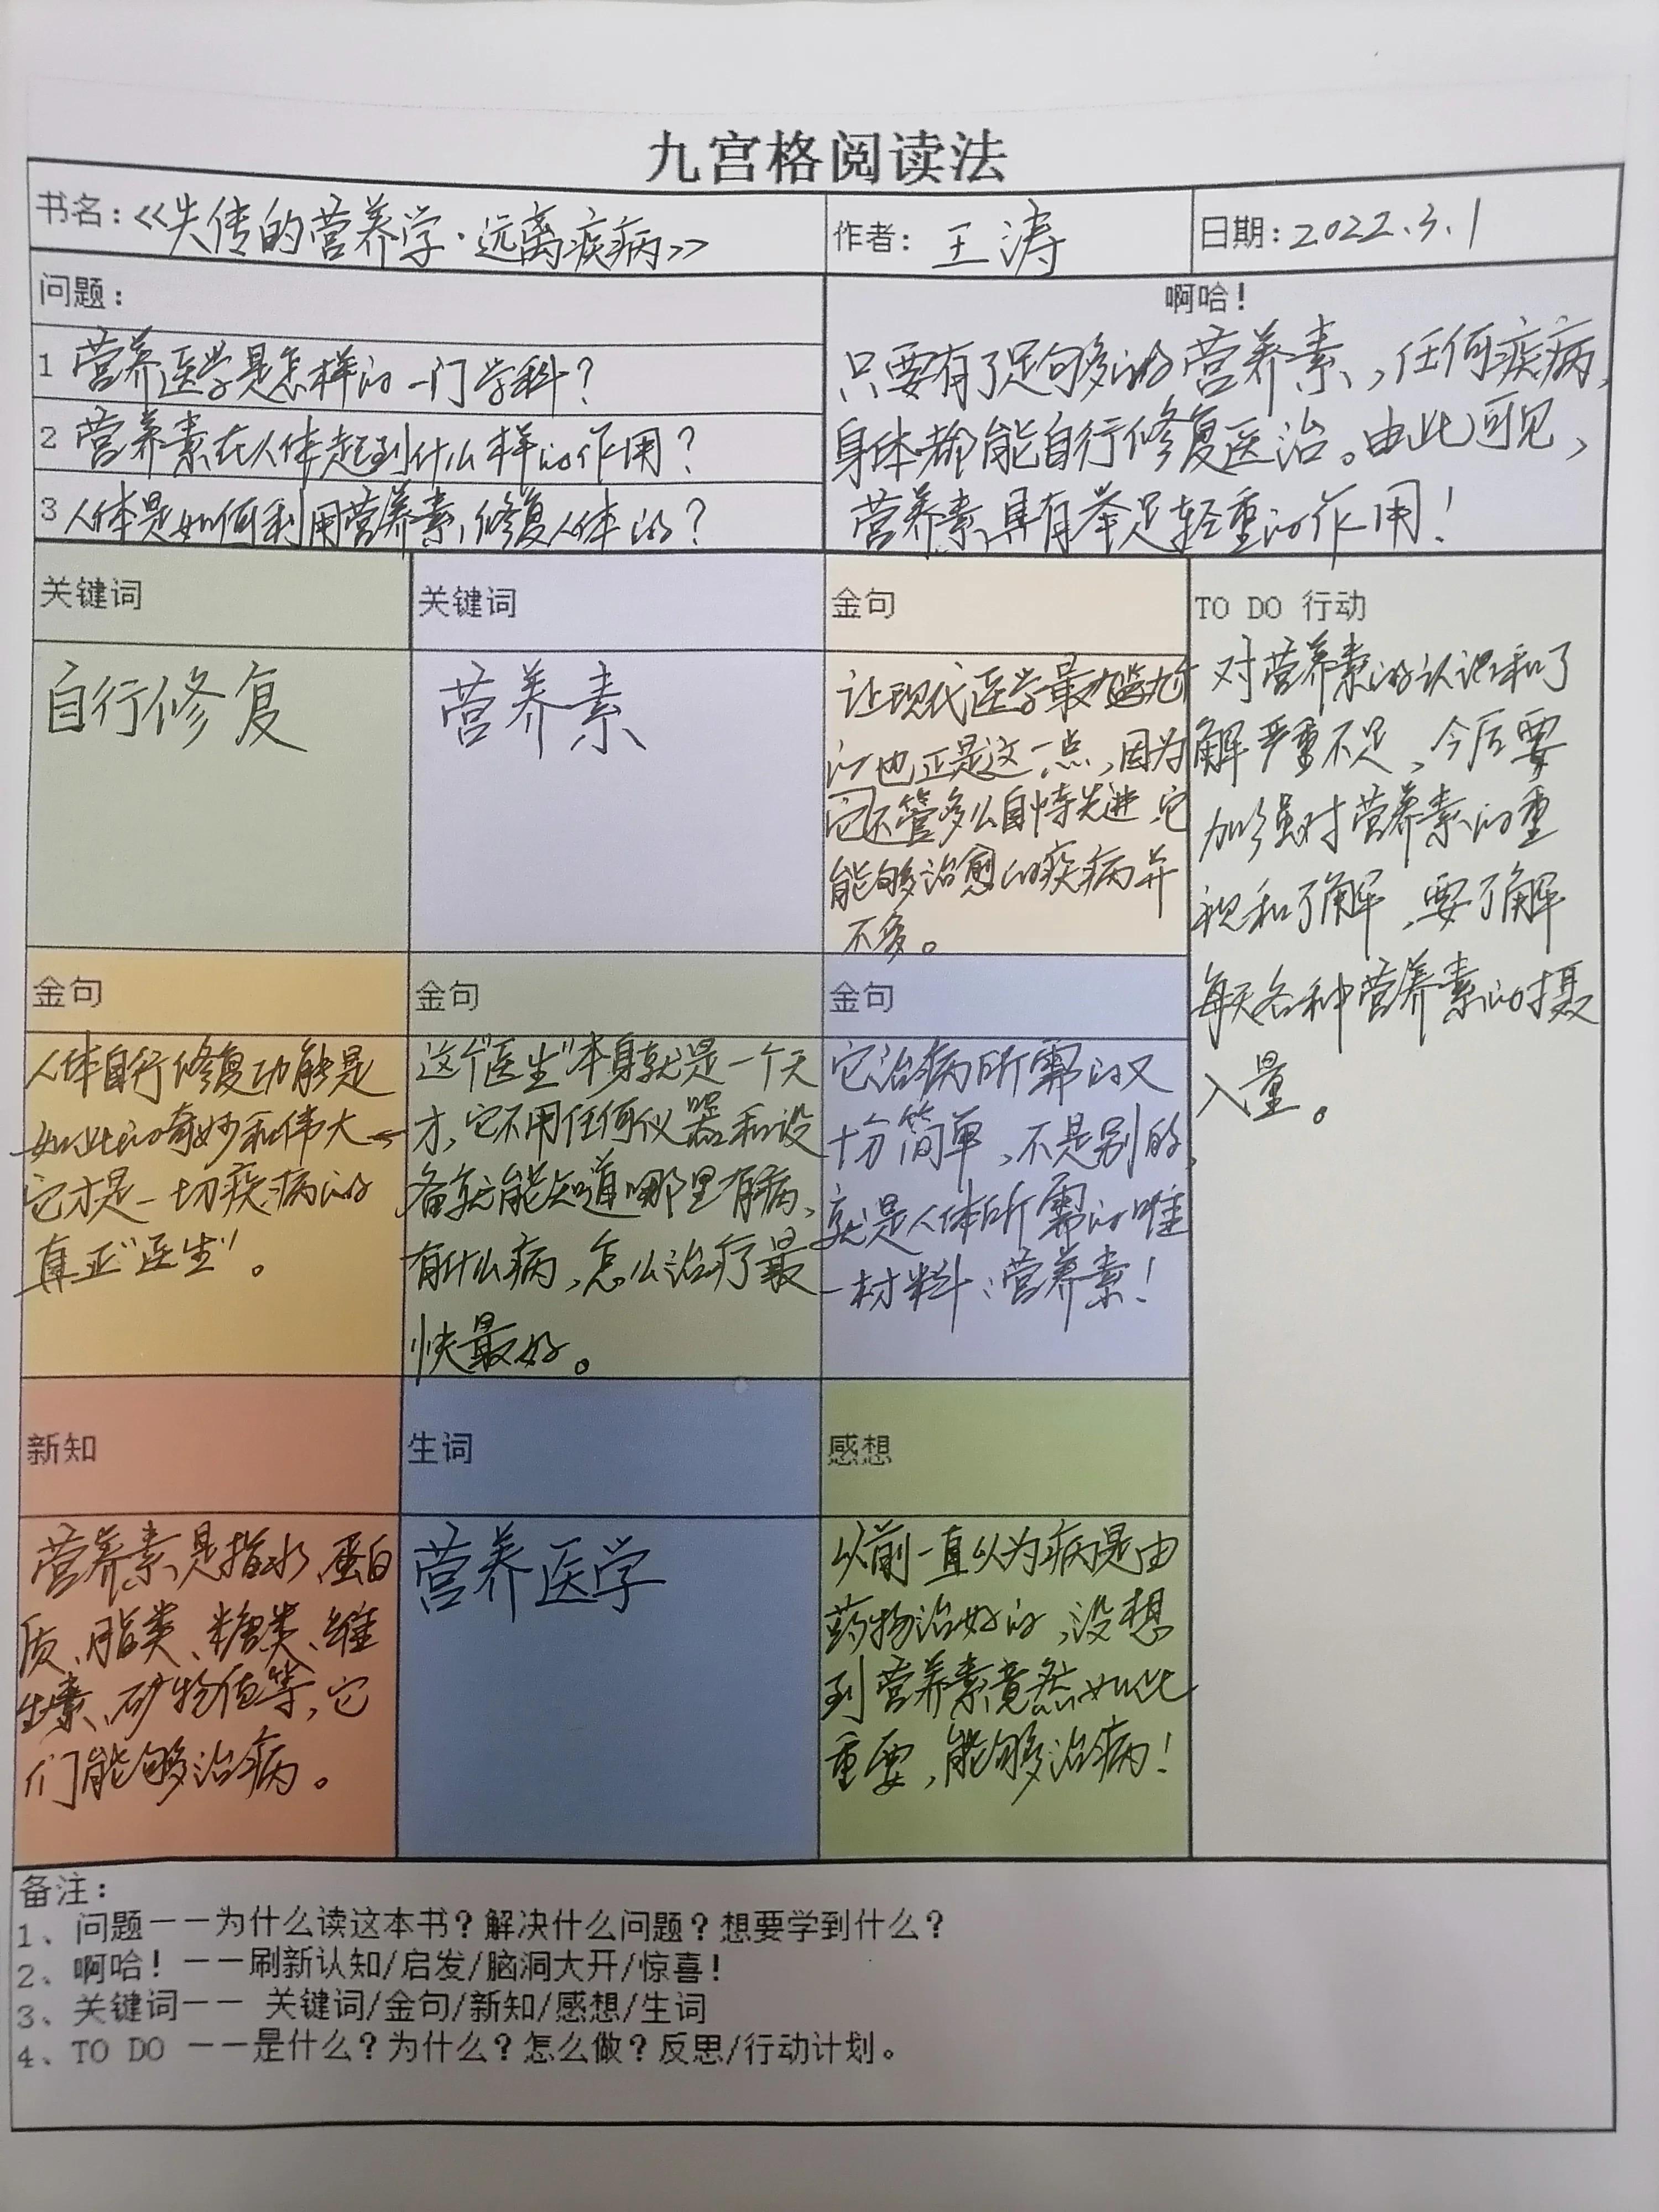 九宫格阅读法
书名：《失传的营养学·远离疾病》
作者：王涛
日期：2022.3.1
问题：
1 营养医学是怎样的一门学科？
2 营养素在人体起到什么样的作用？
3 人体是如何利用营养素修复人体的？
啊哈！
只要有了足够多的营养素，任何疾病，
身体都能自行修复医治。由此可见，
营养素具有举足轻重的作用！
关键词
自行修复
关键词
营养素
金句
让现代医学最尴尬
的也正是这一点，因为
它不管多么自恃先进，它
能够治愈的疾病并
不多。
TO DO 行动
对营养素的认识和了
解严重不足，今后要
加强对营养素的重
视和了解，要了解
每天各种营养素的摄
入量。
金句
人体自行修复功能是
如此的奇妙和伟大
它才是一切疾病的
真正"医生"。
金句
这个"医生"本身就是一个天
才，它不用任何仪器和设
备就能知道哪里有病、
有什么病，怎么治疗最
快最好。
金句
它治病所需的又
十分简单，不是别的，
就是人体所需的唯
一材料：营养素！
新知
营养素是指水、蛋白
质、脂类、糖类、维
生素、矿物值等，它
们能够治病。
生词
营养医学
感想
以前一直以为病是由
药物治好的，没想
到营养素竟然如此
重要，能够治病！
备注：
1、问题——为什么读这本书？解决什么问题？想要学到什么？
2、啊哈！——刷新认知/启发/脑洞大开/惊喜！
3、关键词—— 关键词/金句/新知/感想/生词
4、TO DO ——是什么？为什么？怎么做？反思/行动计划。